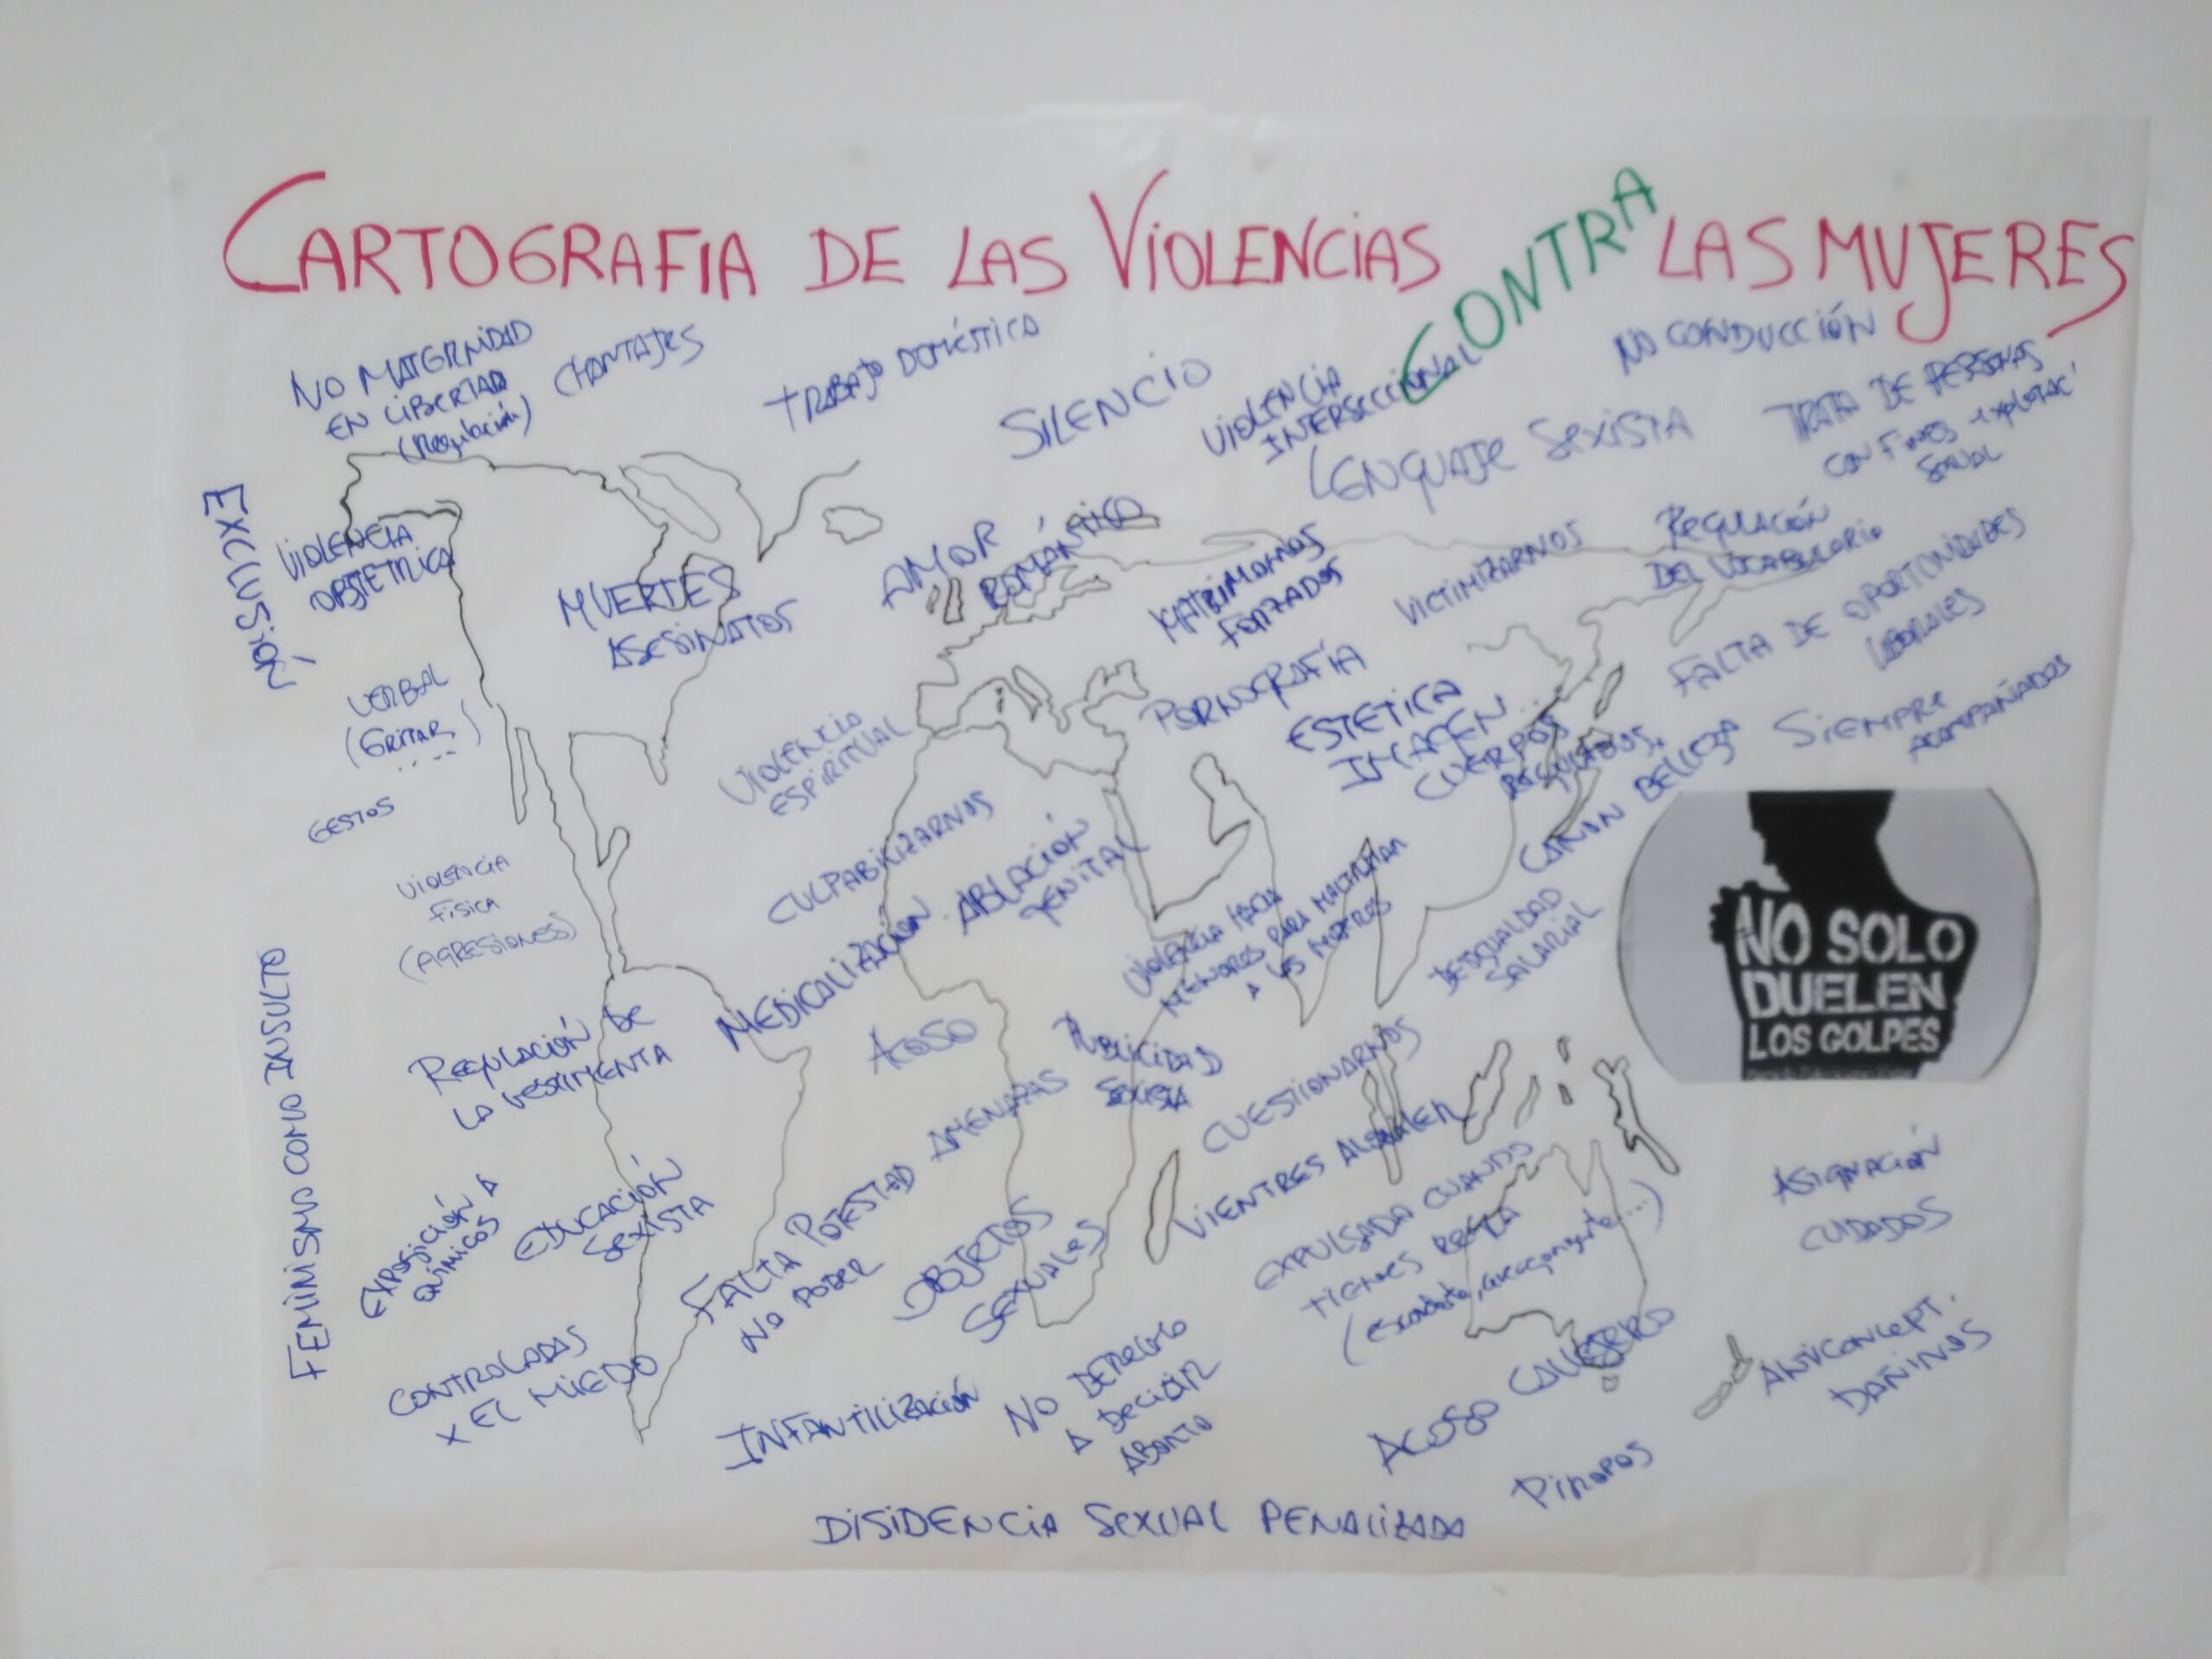 CARTOGRAFIA DE LAS VIOLENCIAS CONTRA LAS MUJERES
NO MATERNIDAD
EN LIBERTAD
(Regulación)
CHANTAJES
TRABAJO DOMÉSTICO
SILENCIO
VIOLENCIA
INTERSECCIONAL
NO CONDUCCIÓN
LENGUAJE SEXISTA
TRATA DE PERSONAS
CON FINES EXPLOTAC'
SEXUAL
EXCLUSIÓN
VIOLENCIA
OBSTETRICA
MUERTES
ASESINATOS
AMOR
ROMÁNTICO
MATRIMONIOS
FORZADOS
VICTIMIZARNOS
REGULACIÓN
DEL VOCABULARIO
FALTA DE OPORTUNIDADES
LABORALES
VERBAL
(GRITAR)
....
GESTOS
VIOLENCIA
ESPIRITUAL
PORNOGRAFÍA
ESTETICA
IMAGEN...
CUERPOS
REGULADOS.
CANON BELLEZA
SIEMPRE
ACOMPAÑADAS
VIOLENCIA
FÍSICA
(AGRESIONES)
CULPABILIZARNOS
MEDICALIZACIÓN
ABLACIÓN
GENITAL
VIOLENCIA HACIA
MENORES PARA MALTRATAR
A LAS MADRES
DESIGUALDAD
SALARIAL
NO SOLO
DUELEN
LOS GOLPES
FEMINISMO COMO INSULTO
REGULACIÓN DE
LA VESTIMENTA
ACOSO
PUBLICIDAD
SEXISTA
CUESTIONARNOS
AMENAZAS
VIENTRES ALQUILER
EXPOSICIÓN A
QUÍMICOS
EDUCACIÓN
SEXISTA
FALTA POTESTAD
NO PODER
OBJETOS
SEXUALES
EXPULSADA CUANDO
TIENES REGLA
ASIGNACIÓN
CUIDADOS
CONTROLADAS
X EL MIEDO
INFANTILIZACIÓN
NO DERECHO
A DECIDIR
ABORTO
ACOSO CALLEJERO
PIROPOS
ANTICONCEPT.
DAÑINOS
DISIDENCIA SEXUAL PENALIZADA